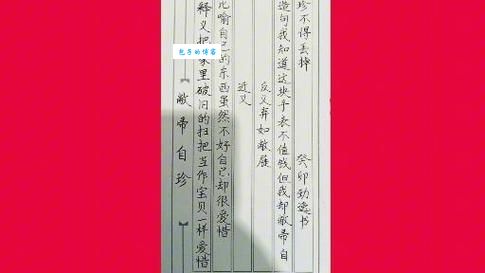 『敝帚自珍』
释义把家里破旧的扫把当作宝贝一样爱惜
比喻自己的东西虽然不好自己却很爱惜
近义
反义弃如敝屣
造句我知道这块手表不值钱但我却敝帚自
珍不得丢掉
癸卯劲逸书
包子的博客